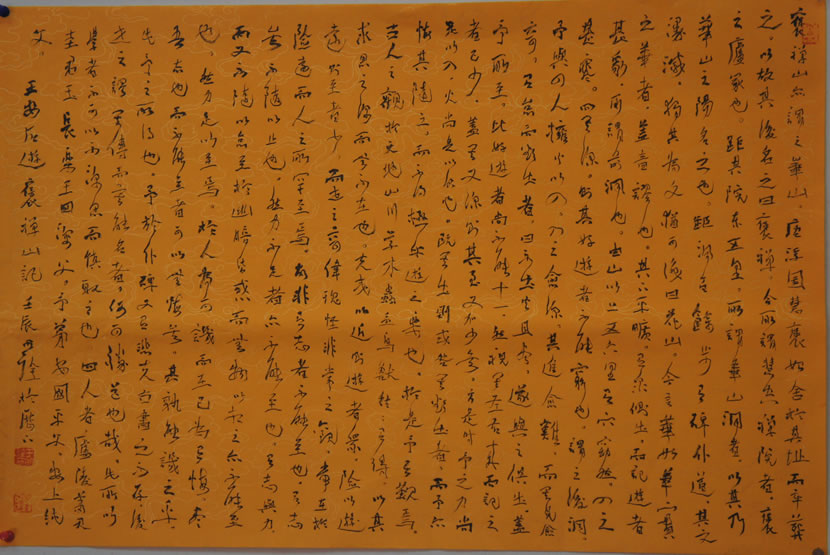 褒禪山亦謂之華山。唐浮圖慧褒始舍於其址而卒葬
之。以故其後名之曰褒禪。今所謂慧空禪院者,褒
之廬冢也。距其院東五里,所謂華山洞者,以其乃
華山之陽名之也。距洞百餘步,有碑仆道,其文
漫滅,獨其為文猶可識曰花山。今言華如華實
之華者,蓋音謬也。其下平曠,有泉側出,而記遊者
甚眾,所謂前洞也。由山以上五六里,有穴窈然,入之
甚寒。問其深,則其好遊者不能窮也。謂之後洞
予與四人擁火以入,入之愈深,其進愈難,而其見愈
奇。有怠而欲出者,曰不出火且盡,遂與之俱出。蓋
予所至,比好遊者尚不能十一,然視其左右,來而記之
者已少。蓋其又深,則其至又加少矣。方是時,予之力尚
足以入,火尚足以明也。既其出,則或咎其欲出者,而予亦
悔其隨之,而不得極夫遊之樂也。於是予有歎焉。
古人之觀於天地山川草木蟲魚鳥獸,往往有得,以其
求思之深而無不在也。夫夷以近,則遊者眾,險以
遠,則至者少。而世之奇偉瑰怪非常之觀,常在於
險遠,而人之所罕至焉,故非有志者不能至也。有志
矣,不隨以止也,然力不足者亦不能至也。有志與力,
而又不隨以怠,至於幽暗昏惑而無物以相之,亦不能至
也。然力足以至焉,於人為可譏,而在己為有悔,盡
吾志也,而不能至者,可以無悔矣,其孰能譏之乎。
此予之所得也。予於仆碑,又有悲夫古書之不存,後
世之謬其傳而莫能名者,何可勝道也哉。此所以
學者不可以不深思而慎取之也。四人者,廬陵蕭君
圭君玉,長樂王回深父,予弟安國平父,安上純
父。
王安石遊褒禪山記 壬辰